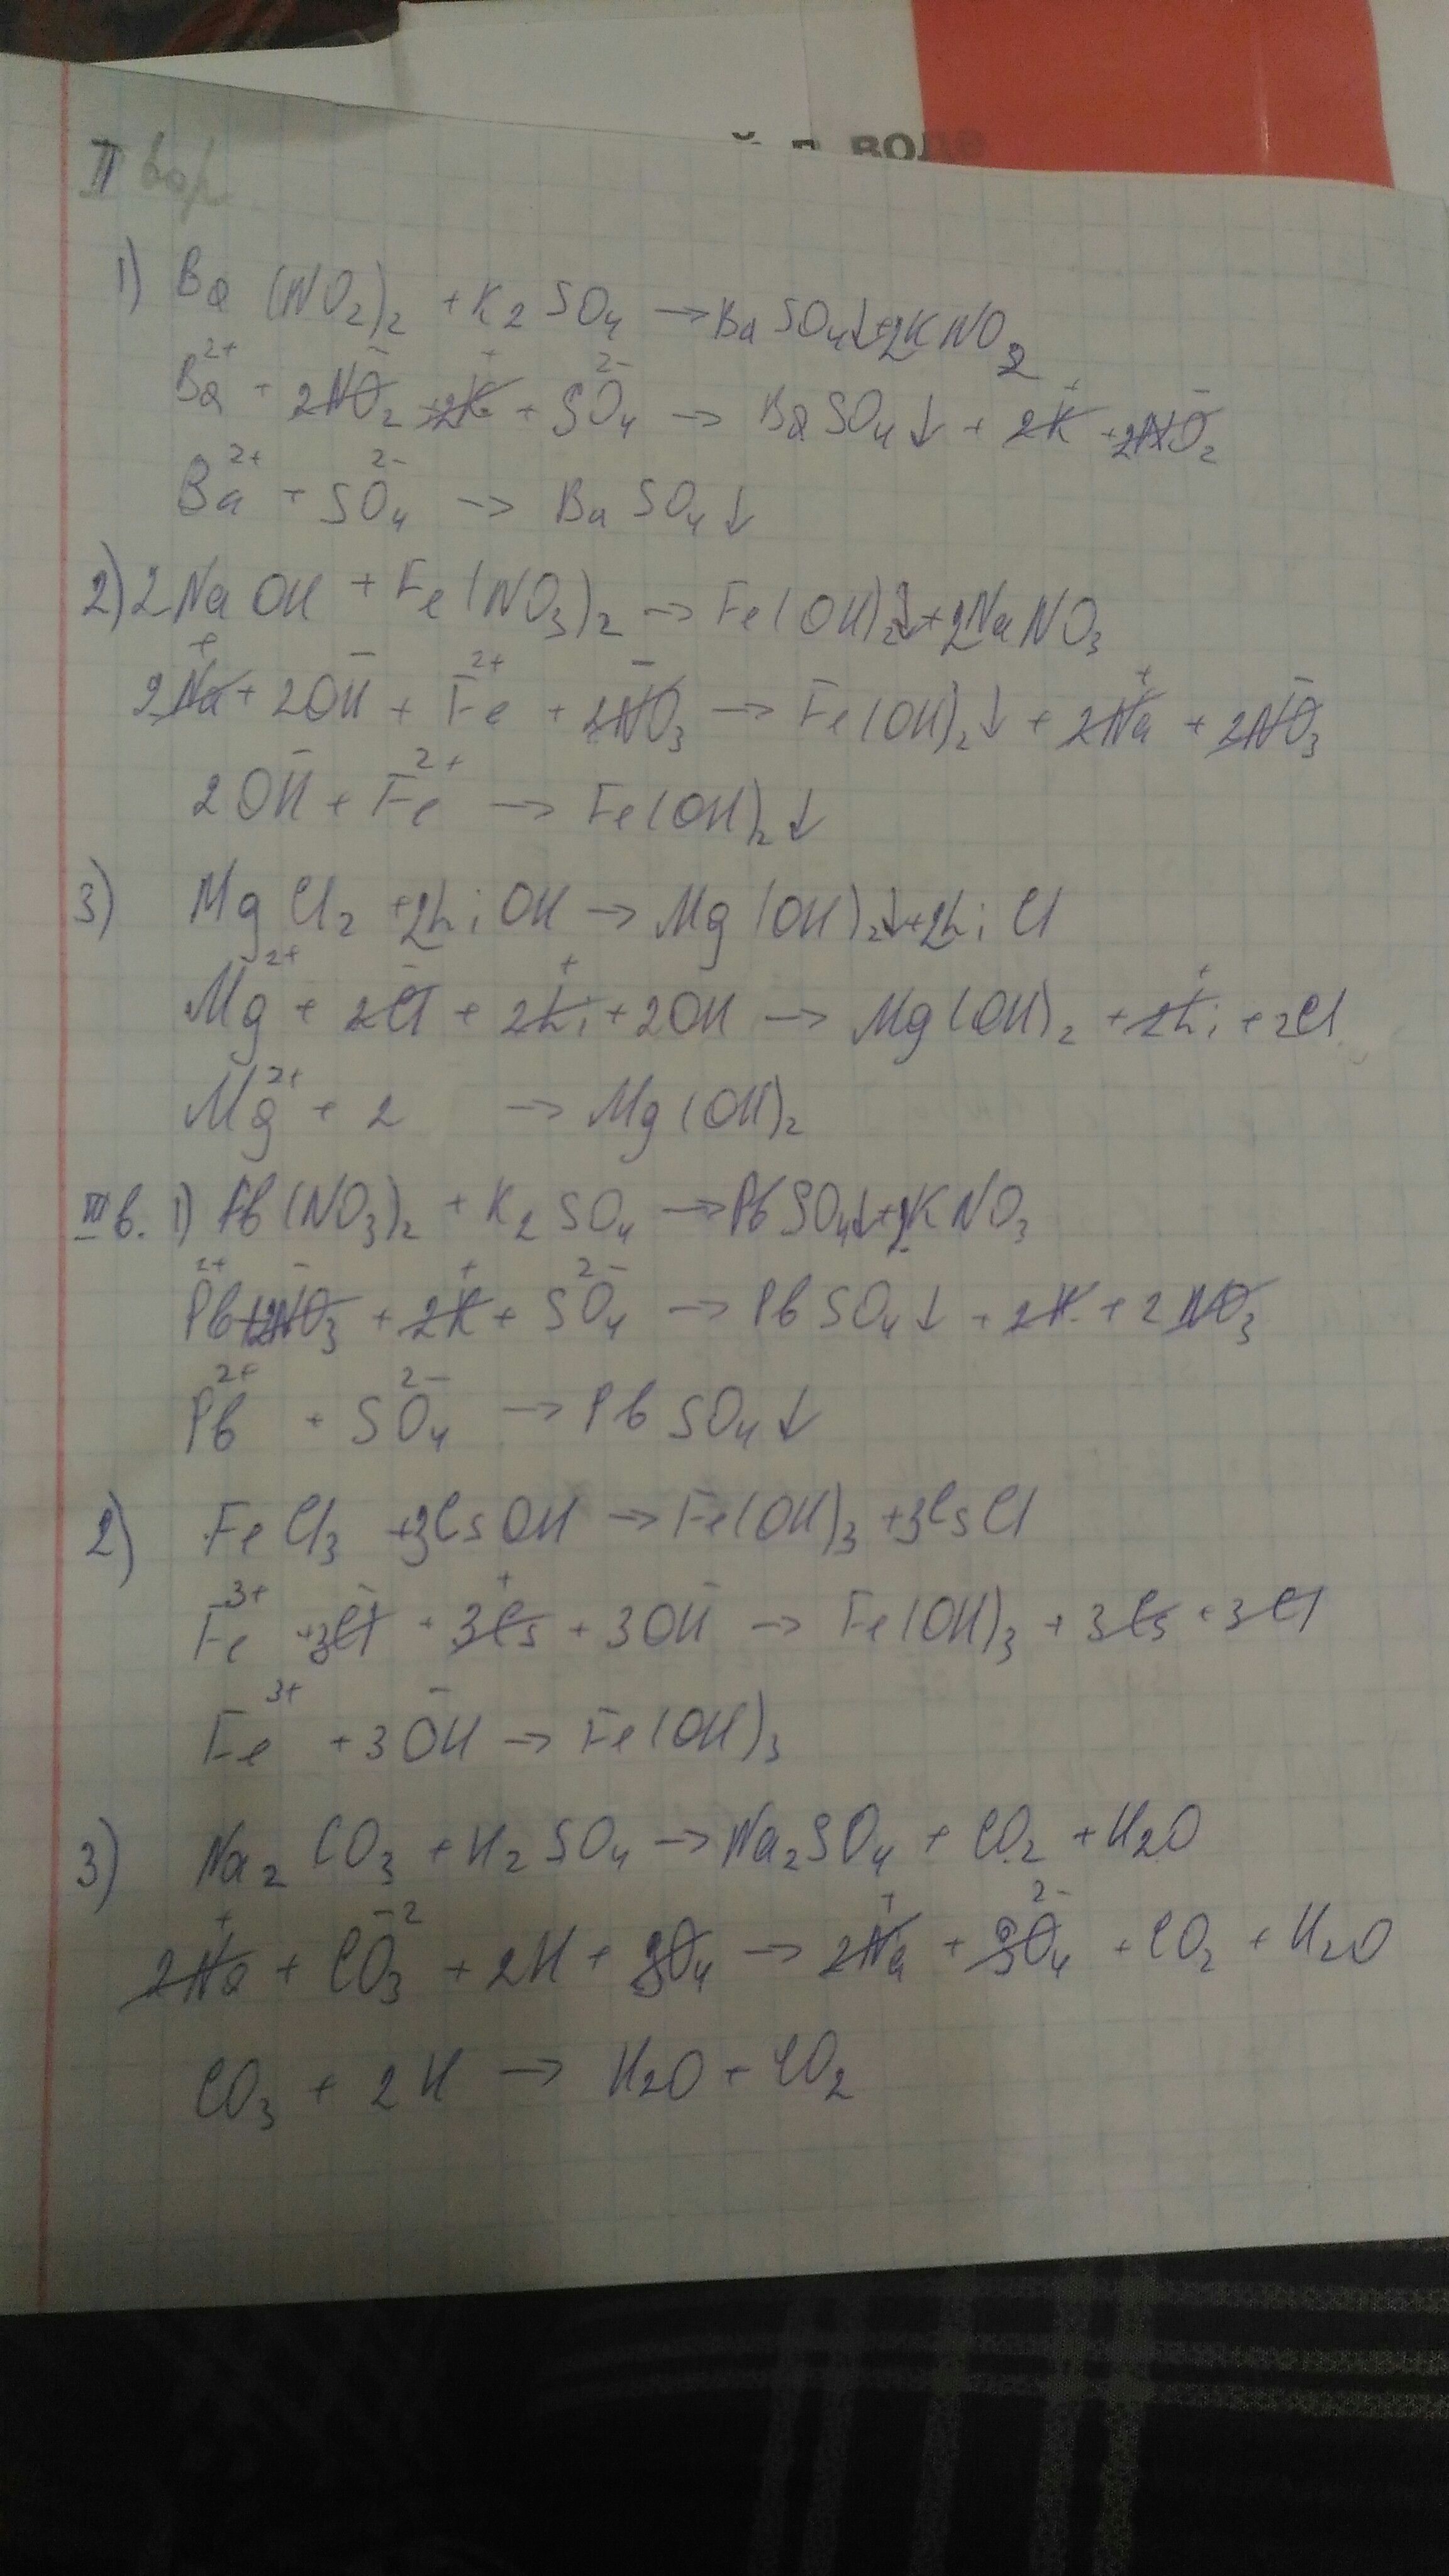 й п воде
II вар
1) Ba (NO2)2 + K2 SO4 → Ba SO4↓ + 2KNO2
Ba²⁺ + 2NO2⁻ + 2K⁺ + SO4²⁻ → BaSO4↓ + 2K⁺ + 2NO2⁻
Ba²⁺ + SO4²⁻ → BaSO4↓
2) 2NaOH + Fe(NO3)2 → Fe(OH)2↓ + 2NaNO3
2Na⁺ + 2OH⁻ + Fe²⁺ + 2NO3⁻ → Fe(OH)2↓ + 2Na⁺ + 2NO3⁻
2OH⁻ + Fe²⁺ → Fe(OH)2↓
3) MgCl2 + 2LiOH → Mg(OH)2↓ + 2LiCl
Mg²⁺ + 2Cl⁻ + 2Li⁺ + 2OH → Mg(OH)2 + 2Li⁺ + 2Cl
Mg²⁺ + 2 → Mg(OH)2
III в. 1) Pb(NO3)2 + K2SO4 → PbSO4↓ + 2KNO3
Pb²⁺ + 2NO3⁻ + 2K⁺ + SO4²⁻ → PbSO4↓ + 2K + 2NO3
Pb²⁺ + SO4²⁻ → PbSO4↓
2) FeCl3 + 3CsOH → Fe(OH)3 + 3CsCl
Fe³⁺ + 3Cl⁻ + 3Cs⁺ + 3OH⁻ → Fe(OH)3 + 3Cs + 3Cl
Fe³⁺ + 3OH⁻ → Fe(OH)3
3) Na2CO3 + H2SO4 → Na2SO4 + CO2 + H2O
2Na⁺ + CO3⁻² + 2H + SO4 → 2Na⁺ + SO4²⁻ + CO2 + H2O
CO3 + 2H → H2O + CO2